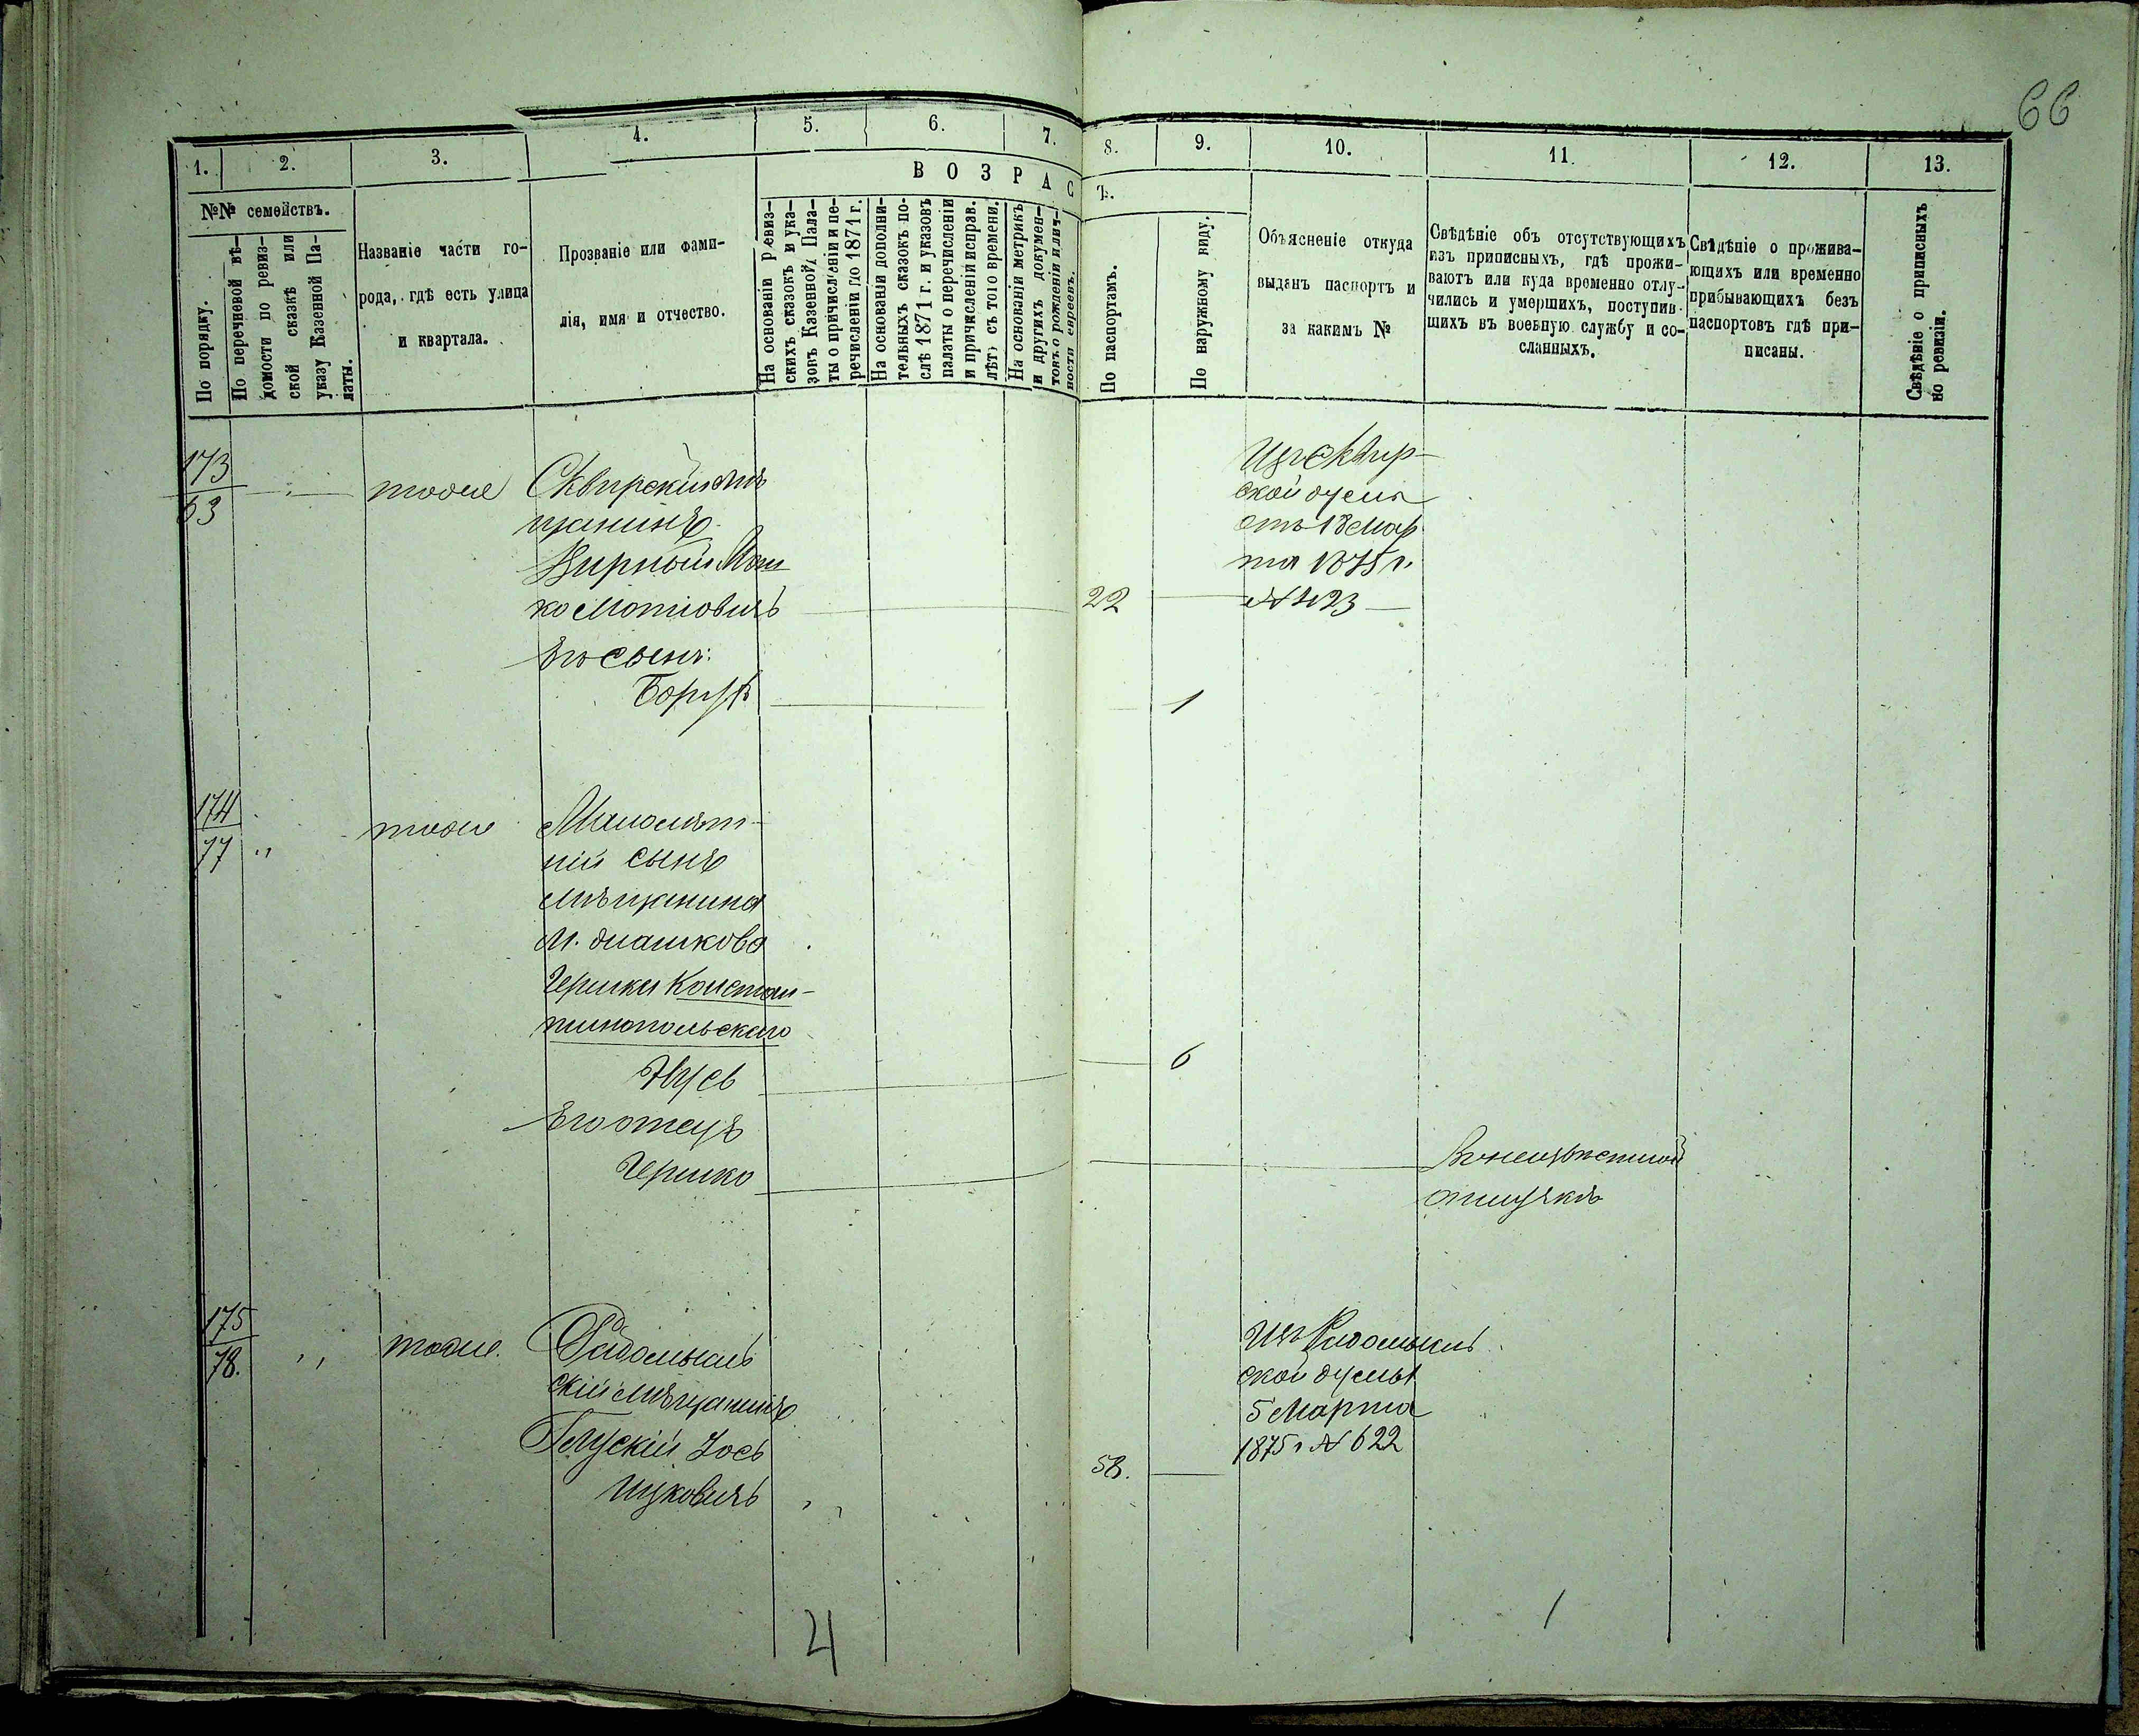 66
1.
2.
3.
4.
5.
6.
7.
8.
9.
10.
11.
12.
13.
№№ семействъ.
В О З Р А С
Ъ.
По порядку.
По перечневой вѣ-
домости по ревиз-
ской сказкѣ или
указу Казенной Па-
латы.
Названіе части го-
рода, гдѣ есть улица
и квартала.
Прозваніе или фами-
лія, имя и отчество.
На основаніи ревиз-
скихъ сказокъ и ука-
зовъ Казенной Пала-
ты о причисленіи и пе-
речисленіи до 1871 г.
На основаніи дополни-
тельныхъ сказокъ по-
слѣ 1871 г. и указовъ
палаты о перечисленіи
и причисленіи исправ.
лѣтъ съ того времени.
На основаніи метрикъ
и другихъ докумен-
товъ о рожденіи и лич-
ности евреевъ.
По паспортамъ.
По наружному виду.
Объясненіе откуда
выданъ паспортъ и
за какимъ №
Свѣдѣніе объ отсутствующихъ
изъ приписныхъ, гдѣ прожи-
ваютъ или куда временно отлу-
чились и умершихъ, поступив-
шихъ въ военную службу и со-
сланныхъ.
Свѣдѣніе о прожива-
ющихъ или временно
прибывающихъ безъ
паспортовъ гдѣ при-
писаны.
Свѣдѣніе о приписныхъ
но ревизіи.
173
63
тоже
Сквирскій мѣ
щанинъ
Мош
ко Мотіовичъ
22
Его сынъ:
Борухъ
1
Изъ Сквир-
ской думы
отъ 18 Мар
та 1875 г.
№ 423
174
77 "
тоже
Малолѣт-
ній сынъ
мѣщанина
М.
Гершки Констан-
тинопольскаго
Нусь
6
Его отецъ
Гершко
въ неизвѣстной
отлучкѣ
175
78. "
тоже.
Радомысль
скій мѣщанинъ
Іось
Ицковичъ
58.
Изъ Радомысль
ской думы
5 Марта
1875 г № 622
4
1